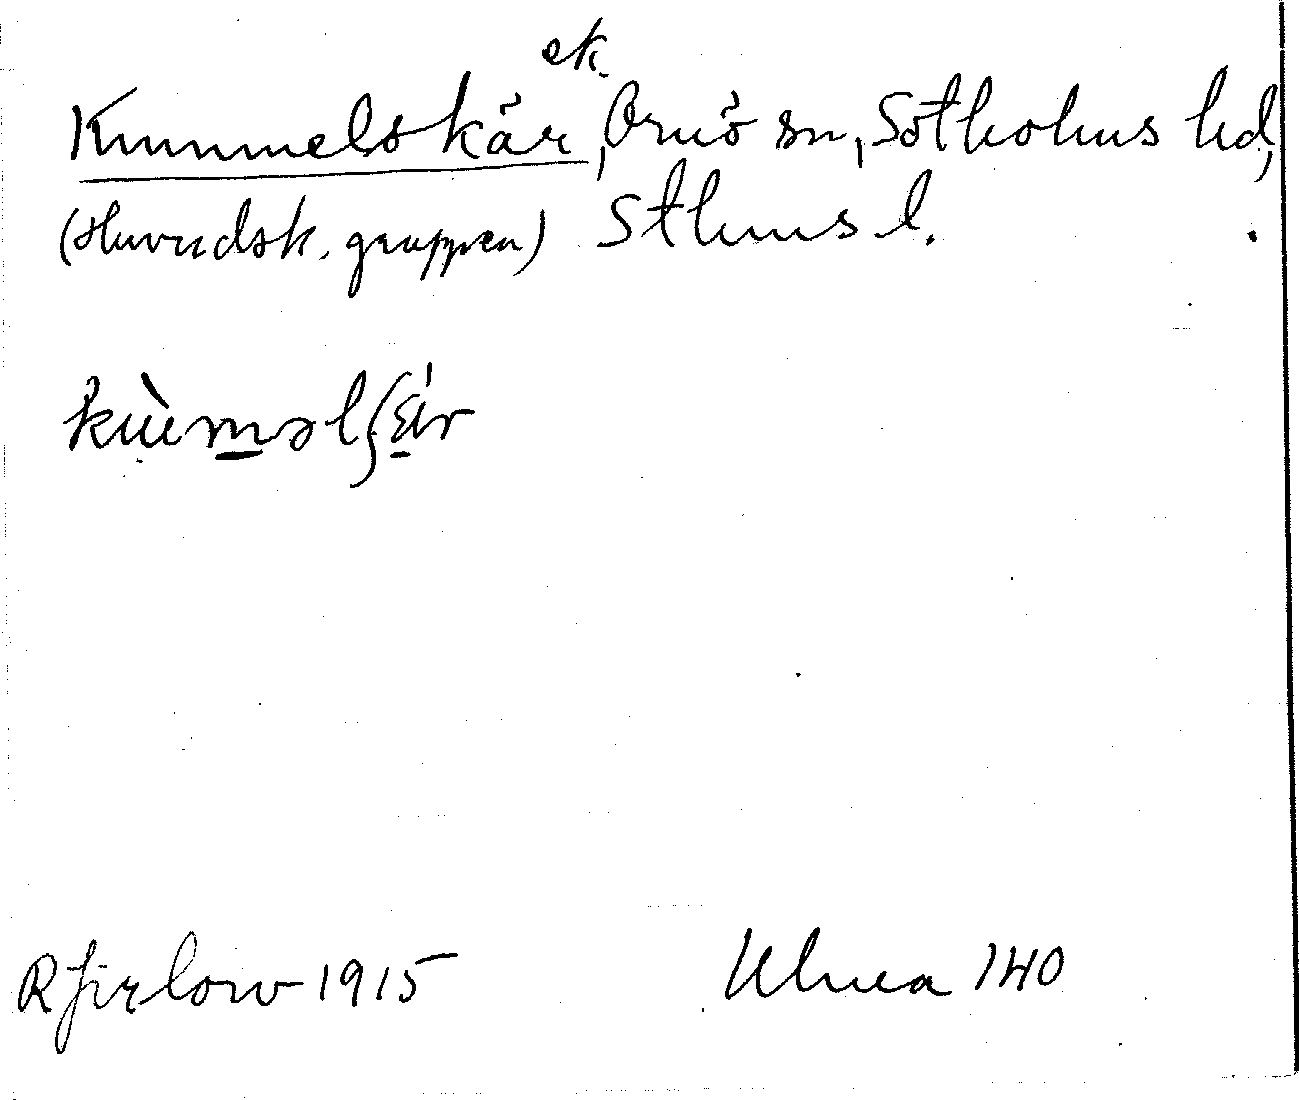 sk.
Kummelskär, Ornö sn, Sotholms hd,
(Huvudsk. gruppen) Sthms l.
kùmǝlʃɛ̀r
R Jirlow 1915 Ulvca 140